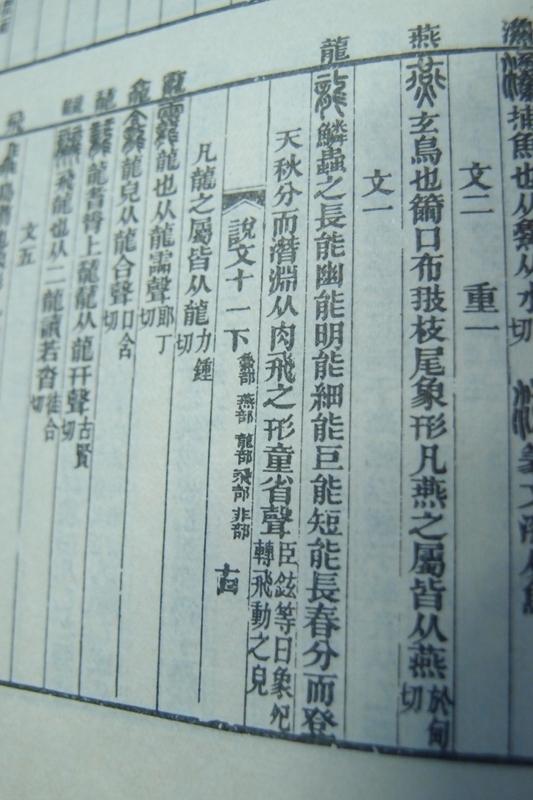 捕魚也从𩺰从水
切
文二 重一
燕
玄鳥也籋口布翄枝尾象形凡燕之屬皆从燕於甸切
文一
龍
鱗蟲之長能幽能明能細能巨能短能長春分而登
天秋分而潛淵从肉飛之形童省聲臣鉉等曰象夗轉飛動之皃
說文十一下
燕部 龍部 飛部 非部
凡龍之屬皆从龍力鍾切
龍也从龍霝聲郎丁切
龍皃从龍合聲口含切
龍耆脊上龖龖从龍幵聲古賢切
飛龍也从二龍讋若沓徒合切
文五